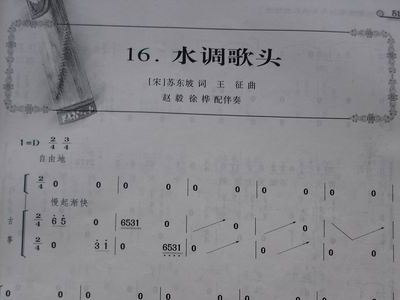 51
16. 水调歌头
[宋]苏东坡 词 王 征 曲
赵 毅 徐 桦 配伴奏
1=D 2/4 3/4
自由地
2/4 0 0 0 0 0 0 0
慢起渐快
古筝
2/4 6 5 0 6531
2/4 0 3 1 0 6531
0 0 0 0 0